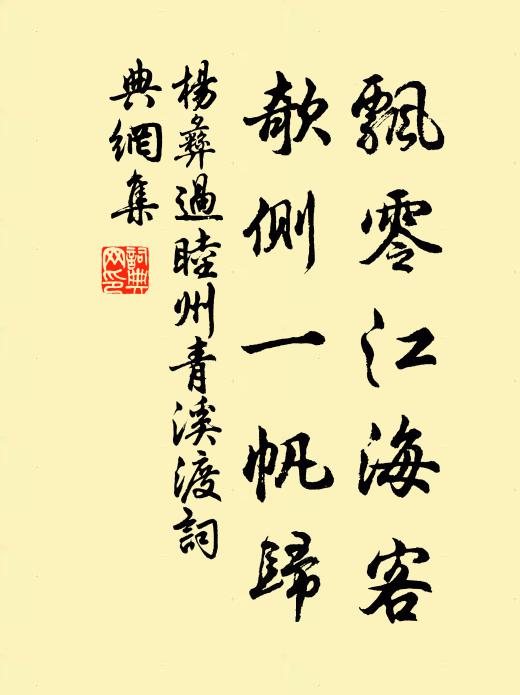 飄零江海客
欹側一帆歸
楊彝過睦州青溪渡詞
典網集
詞典
网印